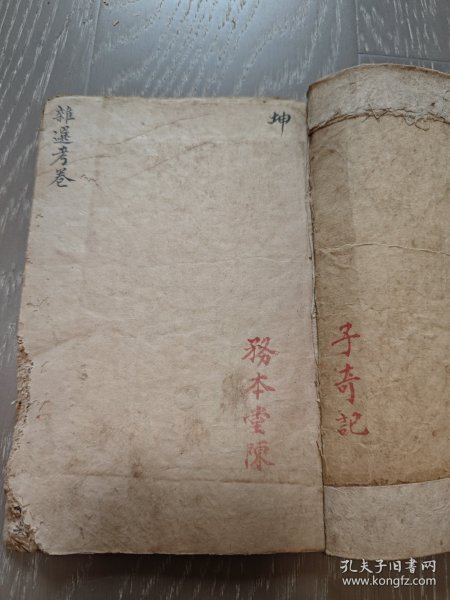 子奇記
坤
務本堂陳
雜選考卷
孔夫子旧书网
www.kongfz.com